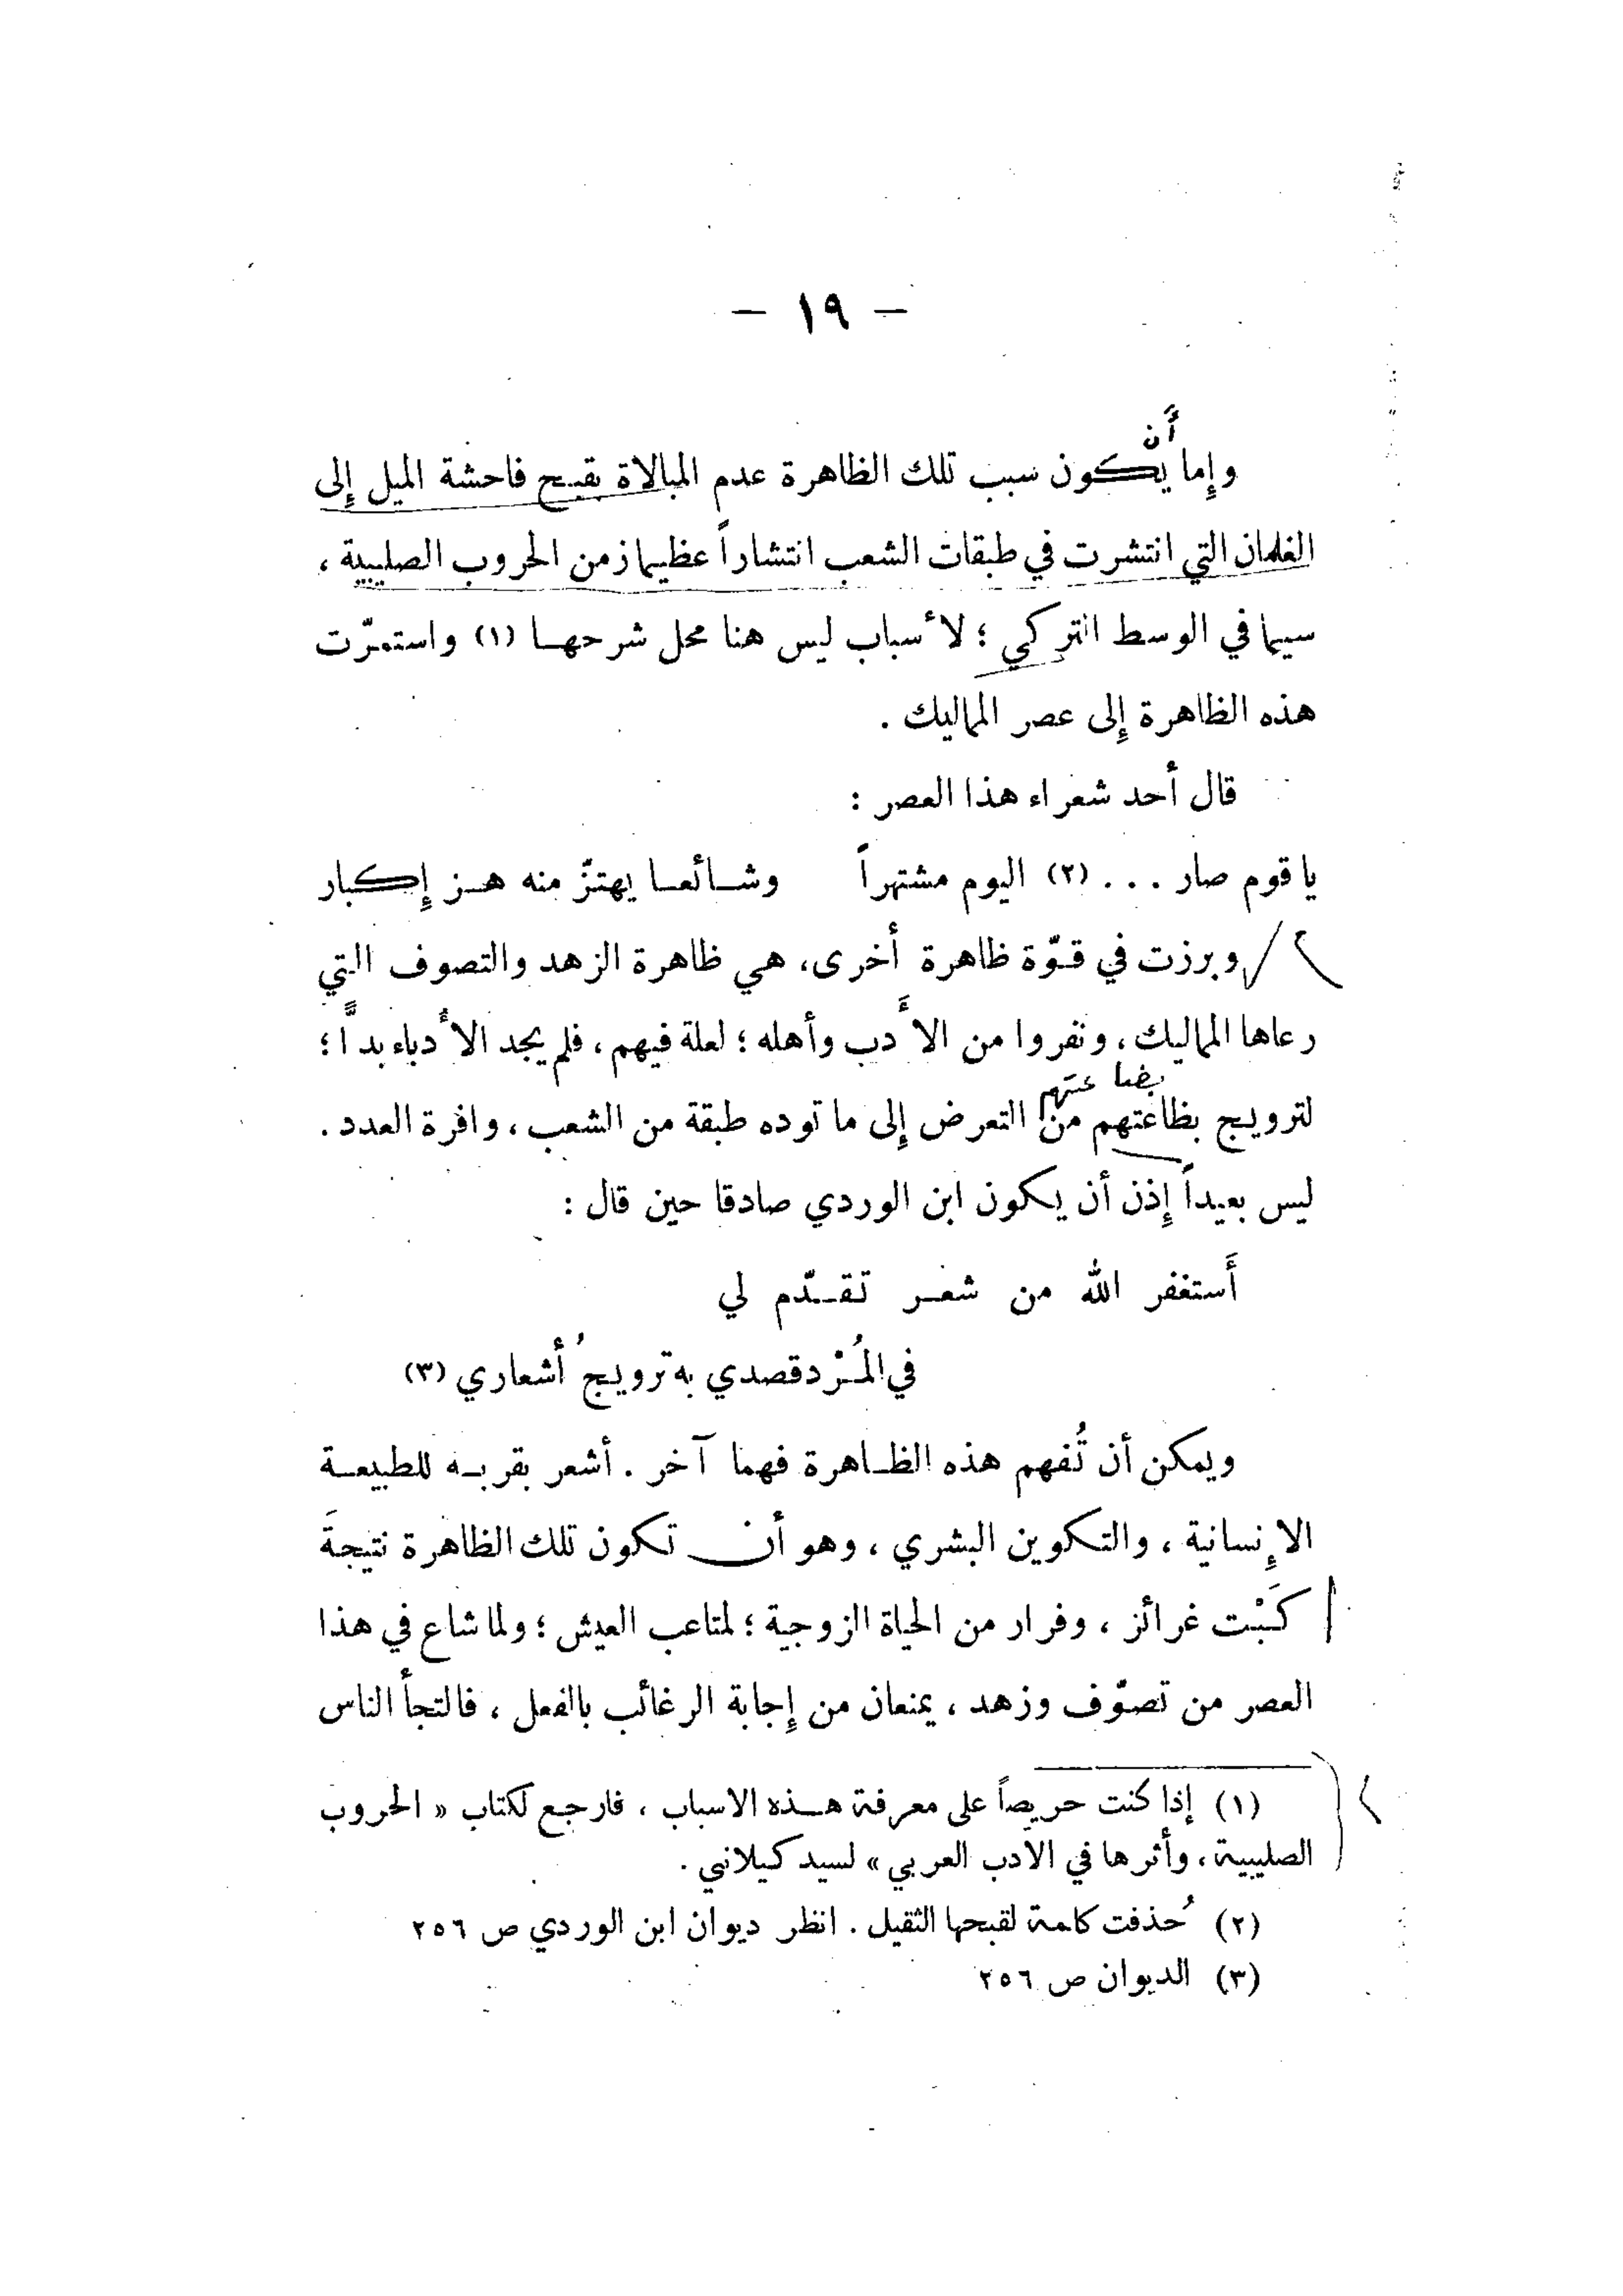 — ١٩ —
أن
وإما يكون سبب تلك الظاهرة عدم المبالاة بقبح فاحشة الميل إلى
الغلمان التي انتشرت في طبقات الشعب انتشاراً عظيما زمن الحروب الصليبية ،
سيما في الوسط التركي ؛ لأسباب ليس هنا محل شرحها (١) واستمرّت
هذه الظاهرة إلى عصر المماليك .
قال أحد شعراء هذا العصر :
يا قوم صار . . . (٢) اليوم مشتهراً وشائعا يهتزّ منه هز إكبار
وبرزت في قوّة ظاهرة أخرى، هي ظاهرة الزهد والتصوف التي
رعاها المماليك ، ونفروا من الأَدب وأهله ؛ لعلة فيهم ، فلم يجد الأُدباء بدًّا ؛
بضاعتهم
لترويج بظاعتهم من التعرض إلى ما توده طبقة من الشعب ، وافرة العدد .
ليس بعيداً إذن أن يكون ابن الوردي صادقا حين قال :
أَستغفر الله من شعر تقدّم لي
في المُرْد قصدي به ترويجُ أشعاري (٣)
ويمكن أن تُفهم هذه الظاهرة فهما آخر . أشعر بقربه للطبيعة
الإنسانية ، والتكوين البشري ، وهو أن تكون تلك الظاهرة نتيجةَ
كَبْت غرائز ، وفرار من الحياة الزوجية ؛ لمتاعب العيش ؛ ولما شاع في هذا
العصر من تصوّف وزهد ، يمنعان من إجابة الرغائب بالفعل ، فالتجأ الناس
(١) إذا كنت حريصاً على معرفة هذه الاسباب ، فارجع لكتاب « الحروب
الصليبية ، وأثرها في الأدب العربي » لسيد كيلاني .
(٢) حُذفت كلمة لقبحها الثقيل . انظر ديوان ابن الوردي ص ٢٥٦
(٣) الديوان ص ٢٥٦